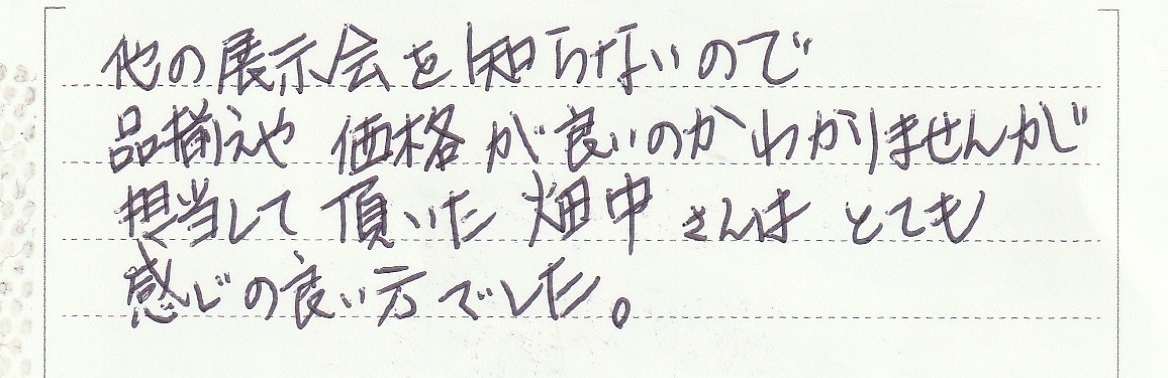 他の展示会を知らないので
品揃えや価格が良いのかわかりませんが
担当して頂いた畑中さんはとても
感じの良い方でした。